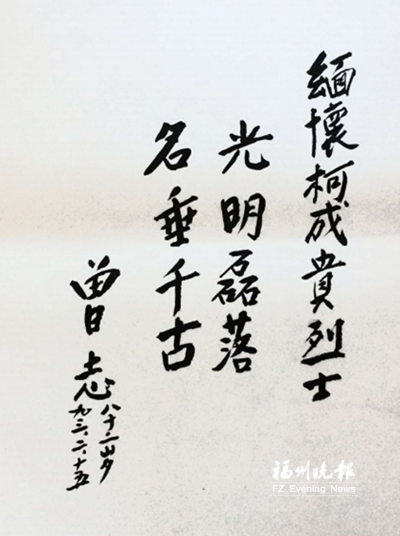 緬懷柯成貴烈士
光明磊落
名垂千古
曾志
八十二岁
九三.二.十五
福州晚報
FZ Evening News